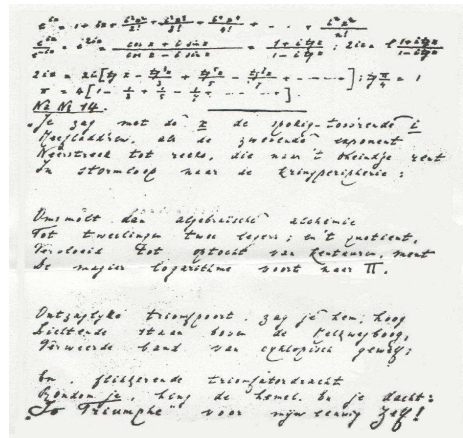 e^{ix} = 1 + ix + \frac{i^2x^2}{2!} + \frac{i^3x^3}{3!} + \frac{i^4x^4}{4!} + . . . + \frac{i^nx^n}{n!}
\frac{e^{ix}}{e^{-ix}} = e^{2ix} = \frac{\cos x + i \sin x}{\cos x - i \sin x} = \frac{1 + i tg x}{1 - i tg x} ; 2ix = l \frac{1 + i tg x}{1 - i tg x}
2ix = 2i [tg x - \frac{tg^3x}{3} + \frac{tg^5x}{5} - \frac{tg^7x}{7} + - - - - -] ; tg \frac{π}{4} = 1
π = 4 [1 - \frac{1}{3} + \frac{1}{5} - \frac{1}{7} + - - - - ].
No 14.
Je zag met de x de spokig-toovrende i
als de zwevende exponent
tot reeks, die naar 't eindje rent
In stormloop naar de kringperipherie :
Omsmolt dan algebraïsche alchemie
Tot tweelingen twee legers ; en 't quotient,
Vervloeid tot optocht van Kentauren, ment
De magiër logarithme voort naar Π.
Ontzaglyke triomfpoort, zag je hem ; hoog
staan boven de
band van cyklopisch gewelf ;
En, flikkerende triomfatordracht
Rondom je, hing de hemel. En je dacht :
"Io Triumphe" voor mijn eeuwig Zelf !